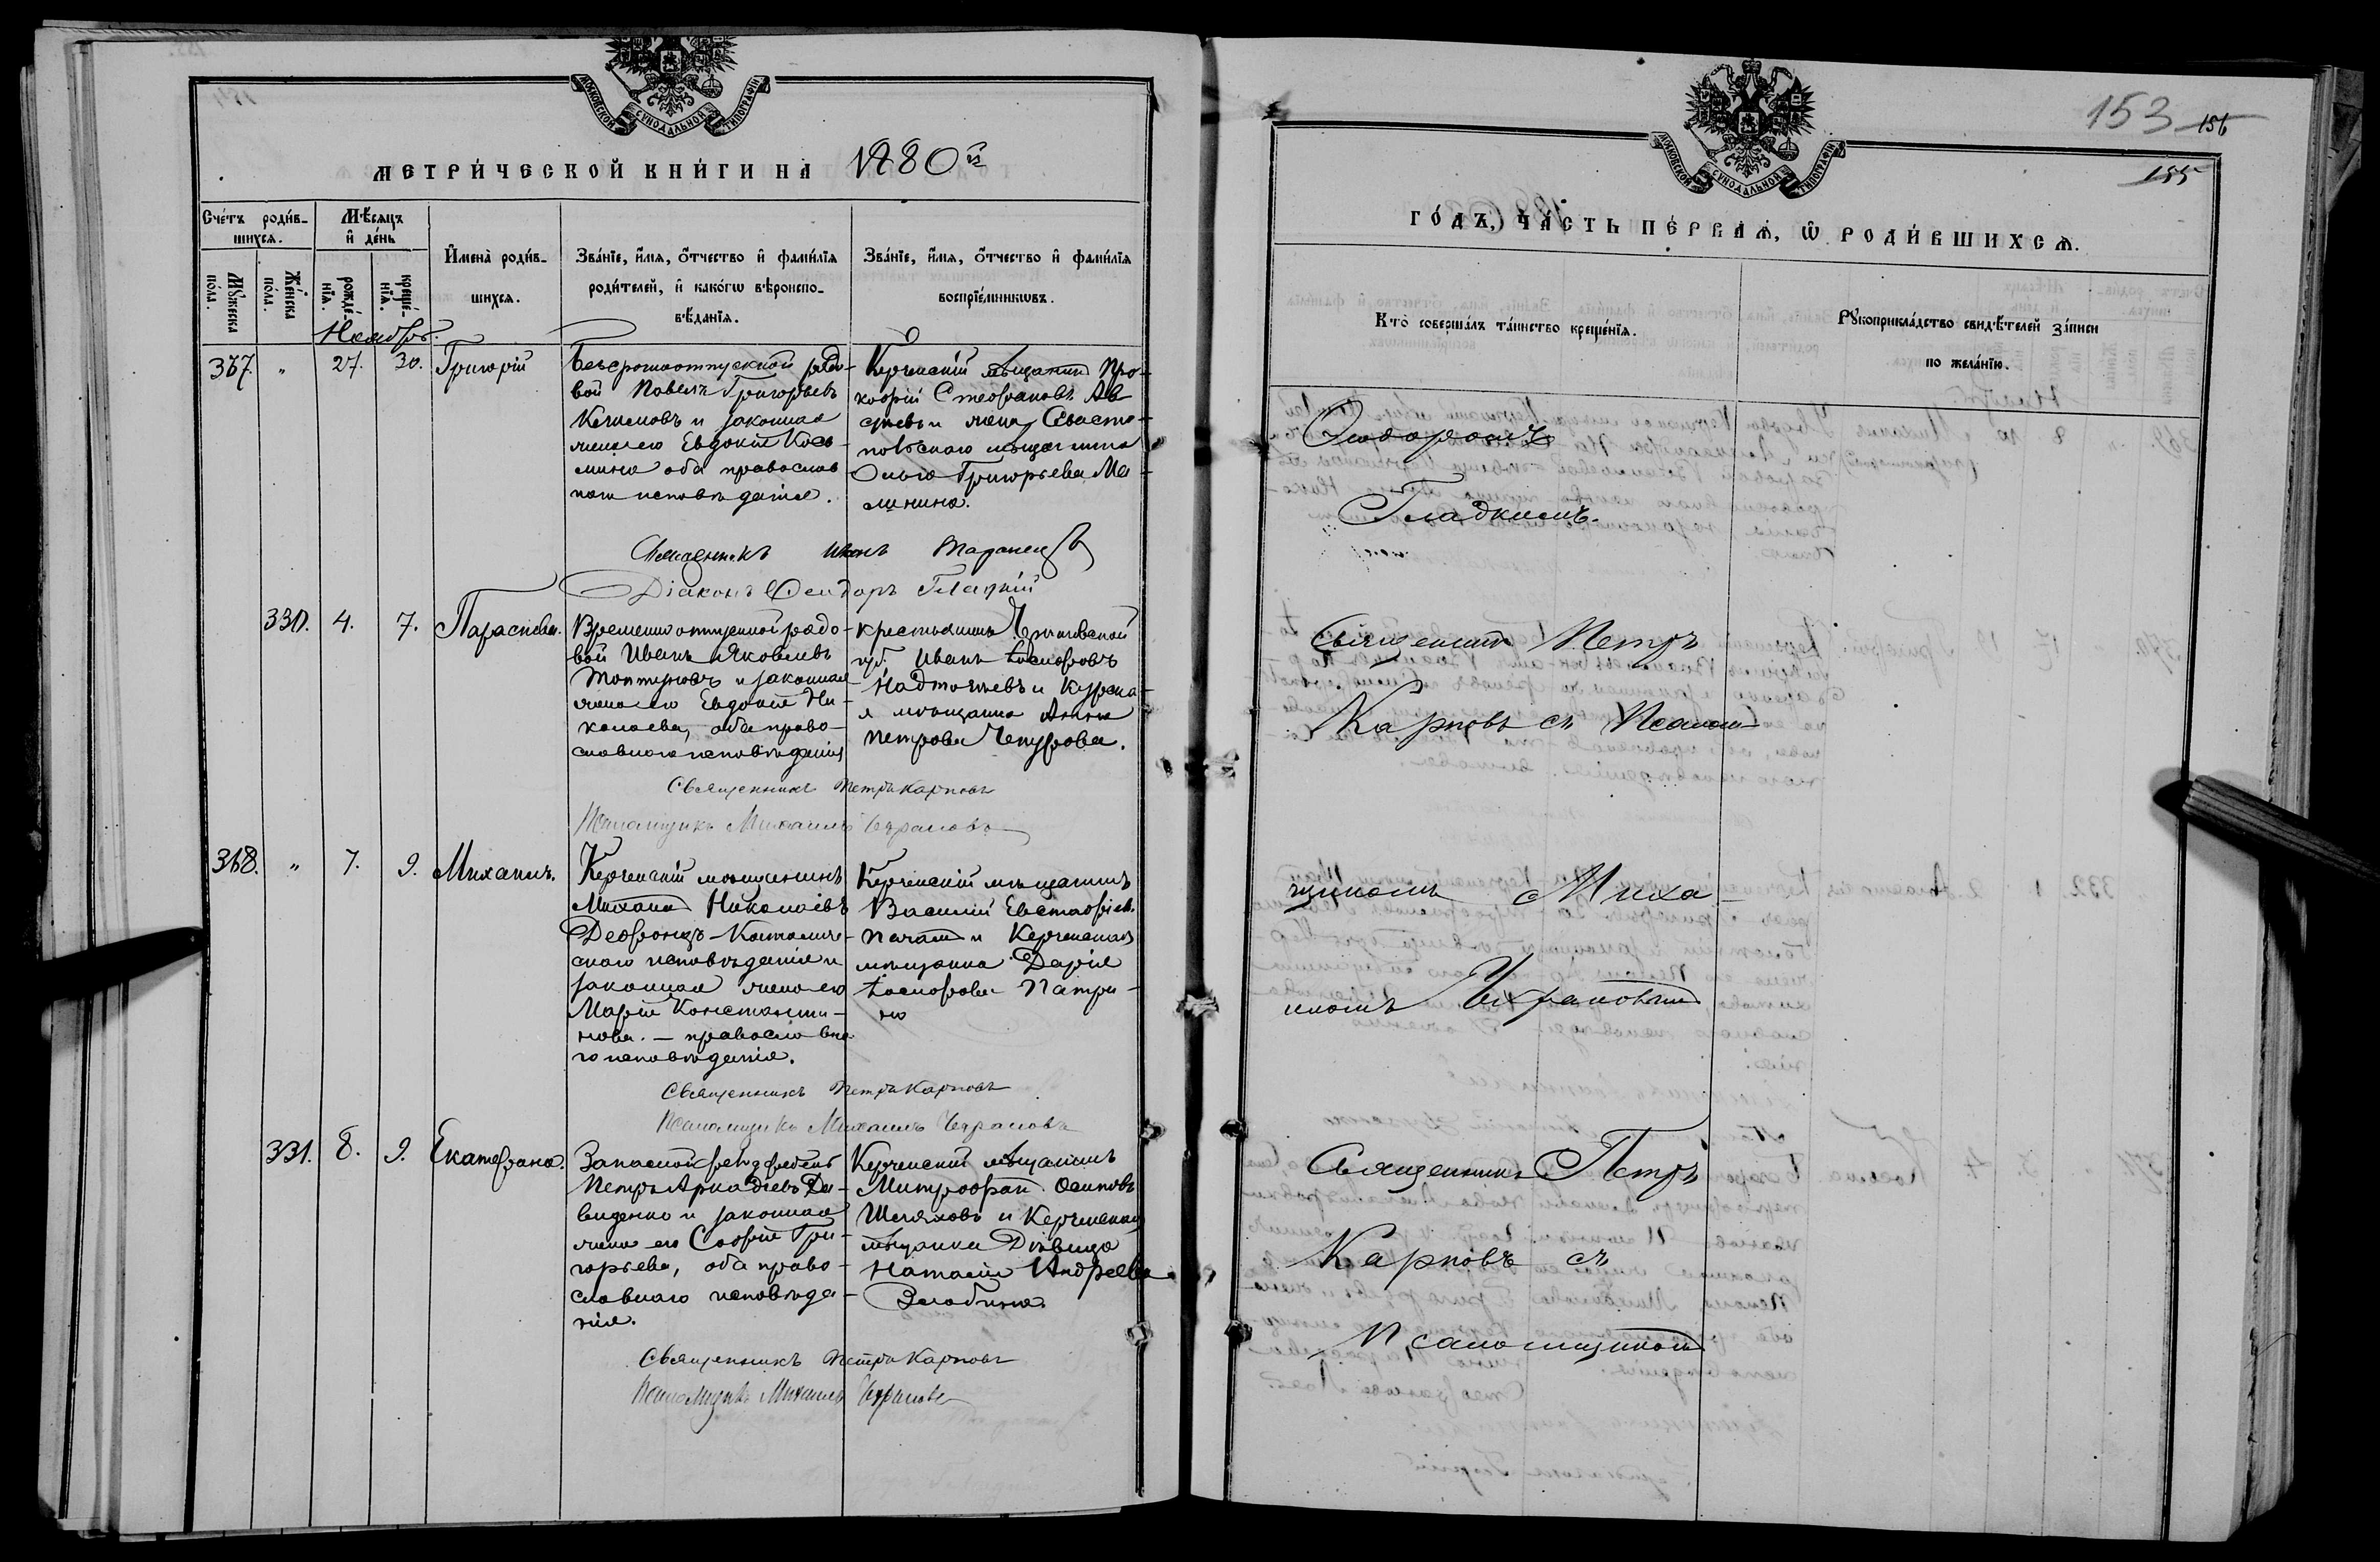 МОСКОВСКОЙ СѴНОДАЛЬНОЙ ТИПОГРАФІИ
МЕТРИЧЕСКОЙ КНИГИ НА 1880й
Счетъ родив-
шихся.
Мѣсяцъ
и день
Мужеска
пола.
Женска
пола.
рожде-
нія.
креще-
нія.
Имена родив-
шихся.
Званіе, имя, отчество и фамилія
родителей, и какогѡ вѣроиспо-
вѣданія.
Званіе, имя, отчество и фамилія
воспріемникѡвъ.
Ноябрь.
367. " 27. 30. Григорій
Безсрочноотпускной рядо-
вой Павелъ Григорьевъ
и законная
жена его Евдокія Козь-
мина оба православ
наго исповѣданія.
Керченскій мѣщанинъ Про-
кофій Стефановъ Ав
и жена Севасто-
польскаго мѣщанина
Ольга Григорьева Ма-
линина.
Священникъ Іоаннъ Таранецъ
Діаконъ Ѳеодоръ Гладкій
330. 4. 7. Параскева.
Временно отпускной рядо-
вой Иванъ Яковлевъ
и законная
жена его Евдокія Ни-
колаева, оба право-
славнаго исповѣданія
крестьянинъ Черниговской
губ. Иванъ Іосифовъ
и Курска-
я мѣщанка Анна
Петрова Чепурова.
Священникъ Петръ Карповъ
Псаломщикъ Михаилъ Чехрановъ
368. " 7. 9. Михаилъ.
Керченскій мѣщанинъ
Михаилъ Николаевъ
Деофонцъ - Католиче-
скаго исповѣданія и
законная жена его
Марія Константи-
нова. — православна
го исповѣданія.
Керченскій мѣщанинъ
Василій Евстафіев.
и Керченская
мѣщанка Дарія
Іосифова Патри-
но
Священникъ Петръ Карповъ
Псаломщикъ Михаилъ Чехрановъ
331. 8. 9. Екатерина.
Запасной
Петръ Аркадіевъ Да-
виденко и законная
жена его Софія Гри-
горьева, оба право-
славнаго исповѣда-
нія.
Керченскій мѣщанинъ
Митрофанъ Осиповъ
Шеляховъ и Керченская
мѣщанка Дѣвица
Наталія Андреева
Злобина.
Священникъ Петръ Карповъ
Псаломщикъ Михаилъ Чехрановъ
153 156
155
МОСКОВСКОЙ СѴНОДАЛЬНОЙ ТИПОГРАФІИ
ГОДЪ, ЧАСТЬ ПЕРВАЯ, Ѡ РОДИВШИХСЯ.
Кто совершалъ таинство крещенія.
Рукоприкладство свидѣтелей записи
по желанію.
Ѳеодоромъ
Гладкимъ.
Священникъ Петръ
Карповъ съ Псалом-
щикомъ Миха-
иломъ Чехрановымъ
Священникъ Петръ
Карповъ съ
Псаломщикомъ